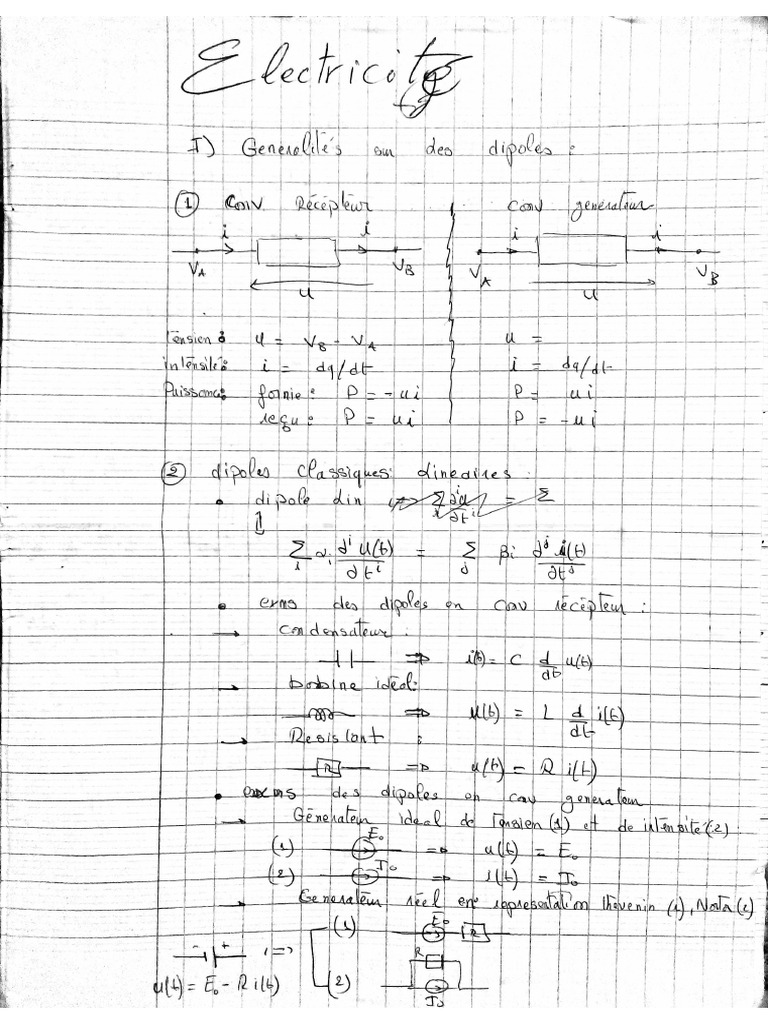 Electricité
I) Generalités sur des dipoles :
① Conv Récépteur
Conv générateur
i i i i
VA VB VA VB
u u
tension : u = VB - VA u =
intensité : i = dq/dt i = dq/dt
Puissance : fornie : P = -ui P = ui
reçu : P = ui P = -ui
② dipoles classiques lineaires :
• dipole lin
∑i αi ∂^i u(t)/∂t^i = ∑j βj ∂^j i(t)/∂t^j
• des dipoles en conv récépteur :
→ condensateur :
⇒ i(t) = C d/dt u(t)
→ bobine idéal :
⇒ u(t) = L d/dt i(t)
→ Resistant :
R ⇒ u(t) = R i(t)
• des dipoles en conv generateur
→ Génerateur ideal de tension (1) et de intensité (2) :
(1) E₀ ⇒ u(t) = E₀
(2) I₀ ⇒ i(t) = I₀
→ Generateur réel en representation thevenin (1), (2)
- + ⇒ (1) E₀ R
u(t) = E₀ - R i(t) (2) R I₀